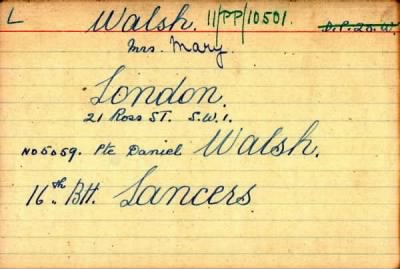 L Walsh. 11/PP/10501.
Mrs. Mary.
London.
21 Ross ST. S.W.1.
No 5059. Pte Daniel Walsh.
16th Btt. Lancers